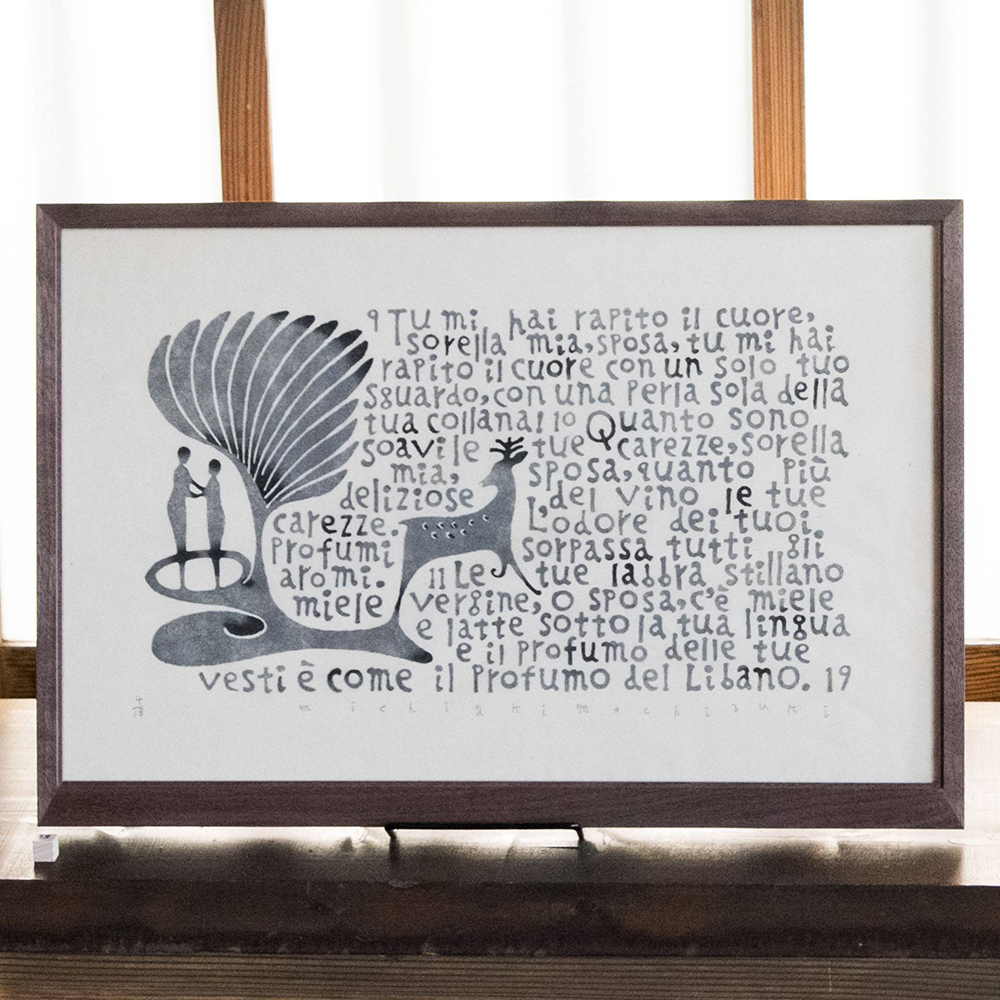 9 Tu mi hai rapito il cuore,
sorella mia, sposa, tu mi hai
rapito il cuore con un solo tuo
sguardo, con una perla sola della
tua collana! 10 Quanto sono
soavi le tue carezze, sorella
mia, sposa, quanto più
deliziose del vino le tue
carezze. L'odore dei tuoi
profumi sorpassa tutti gli
aromi. 11 Le tue labbra stillano
miele vergine, o sposa, c'è miele
e latte sotto la tua lingua
e il profumo delle tue
vesti è come il profumo del Libano. 19
michiaki Mochizuki